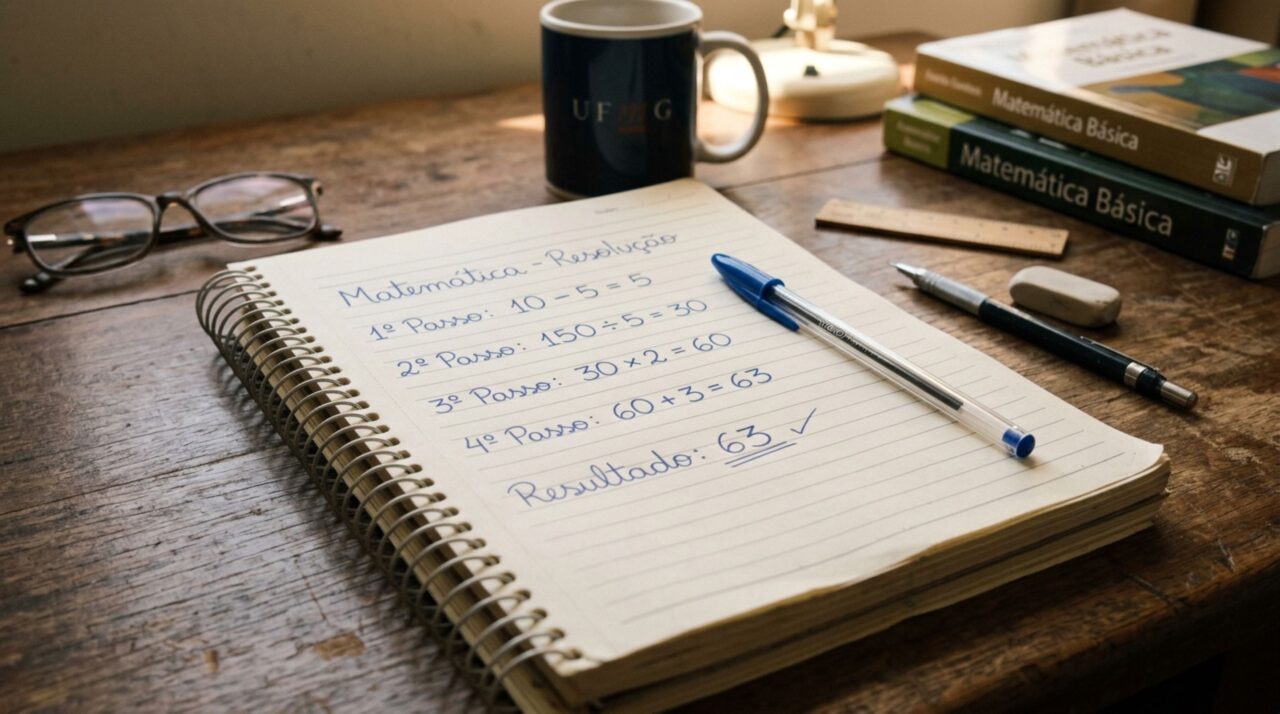 UFMG
Matemática Básica
Matemática Básica
Matemática Básica
Matemática - Resolução
1º Passo: 10 - 5 = 5
2º Passo: 150 ÷ 5 = 30
3º Passo: 30 × 2 = 60
4º Passo: 60 + 3 = 63
Resultado: 63 ✓